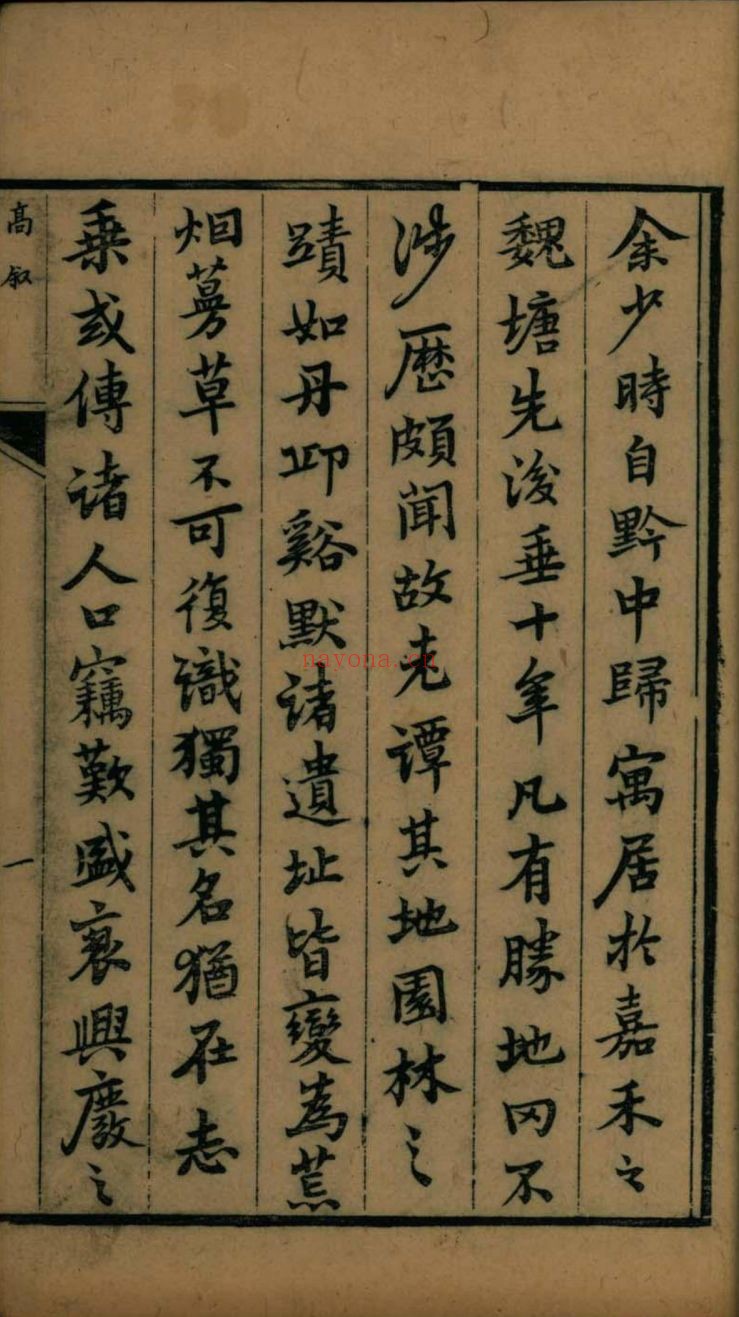 余少時自黔中歸寓居於嘉禾之
魏塘先後垂十年凡有勝地罔不
涉歷頗聞故老譚其地園林之
蹟如丹邱谿默諸遺址皆變為荒
烟蔓草不可復識獨其名猶在志
乗或傳諸人口竊歎盛衰興廢之
高叙
一
nayona.cn